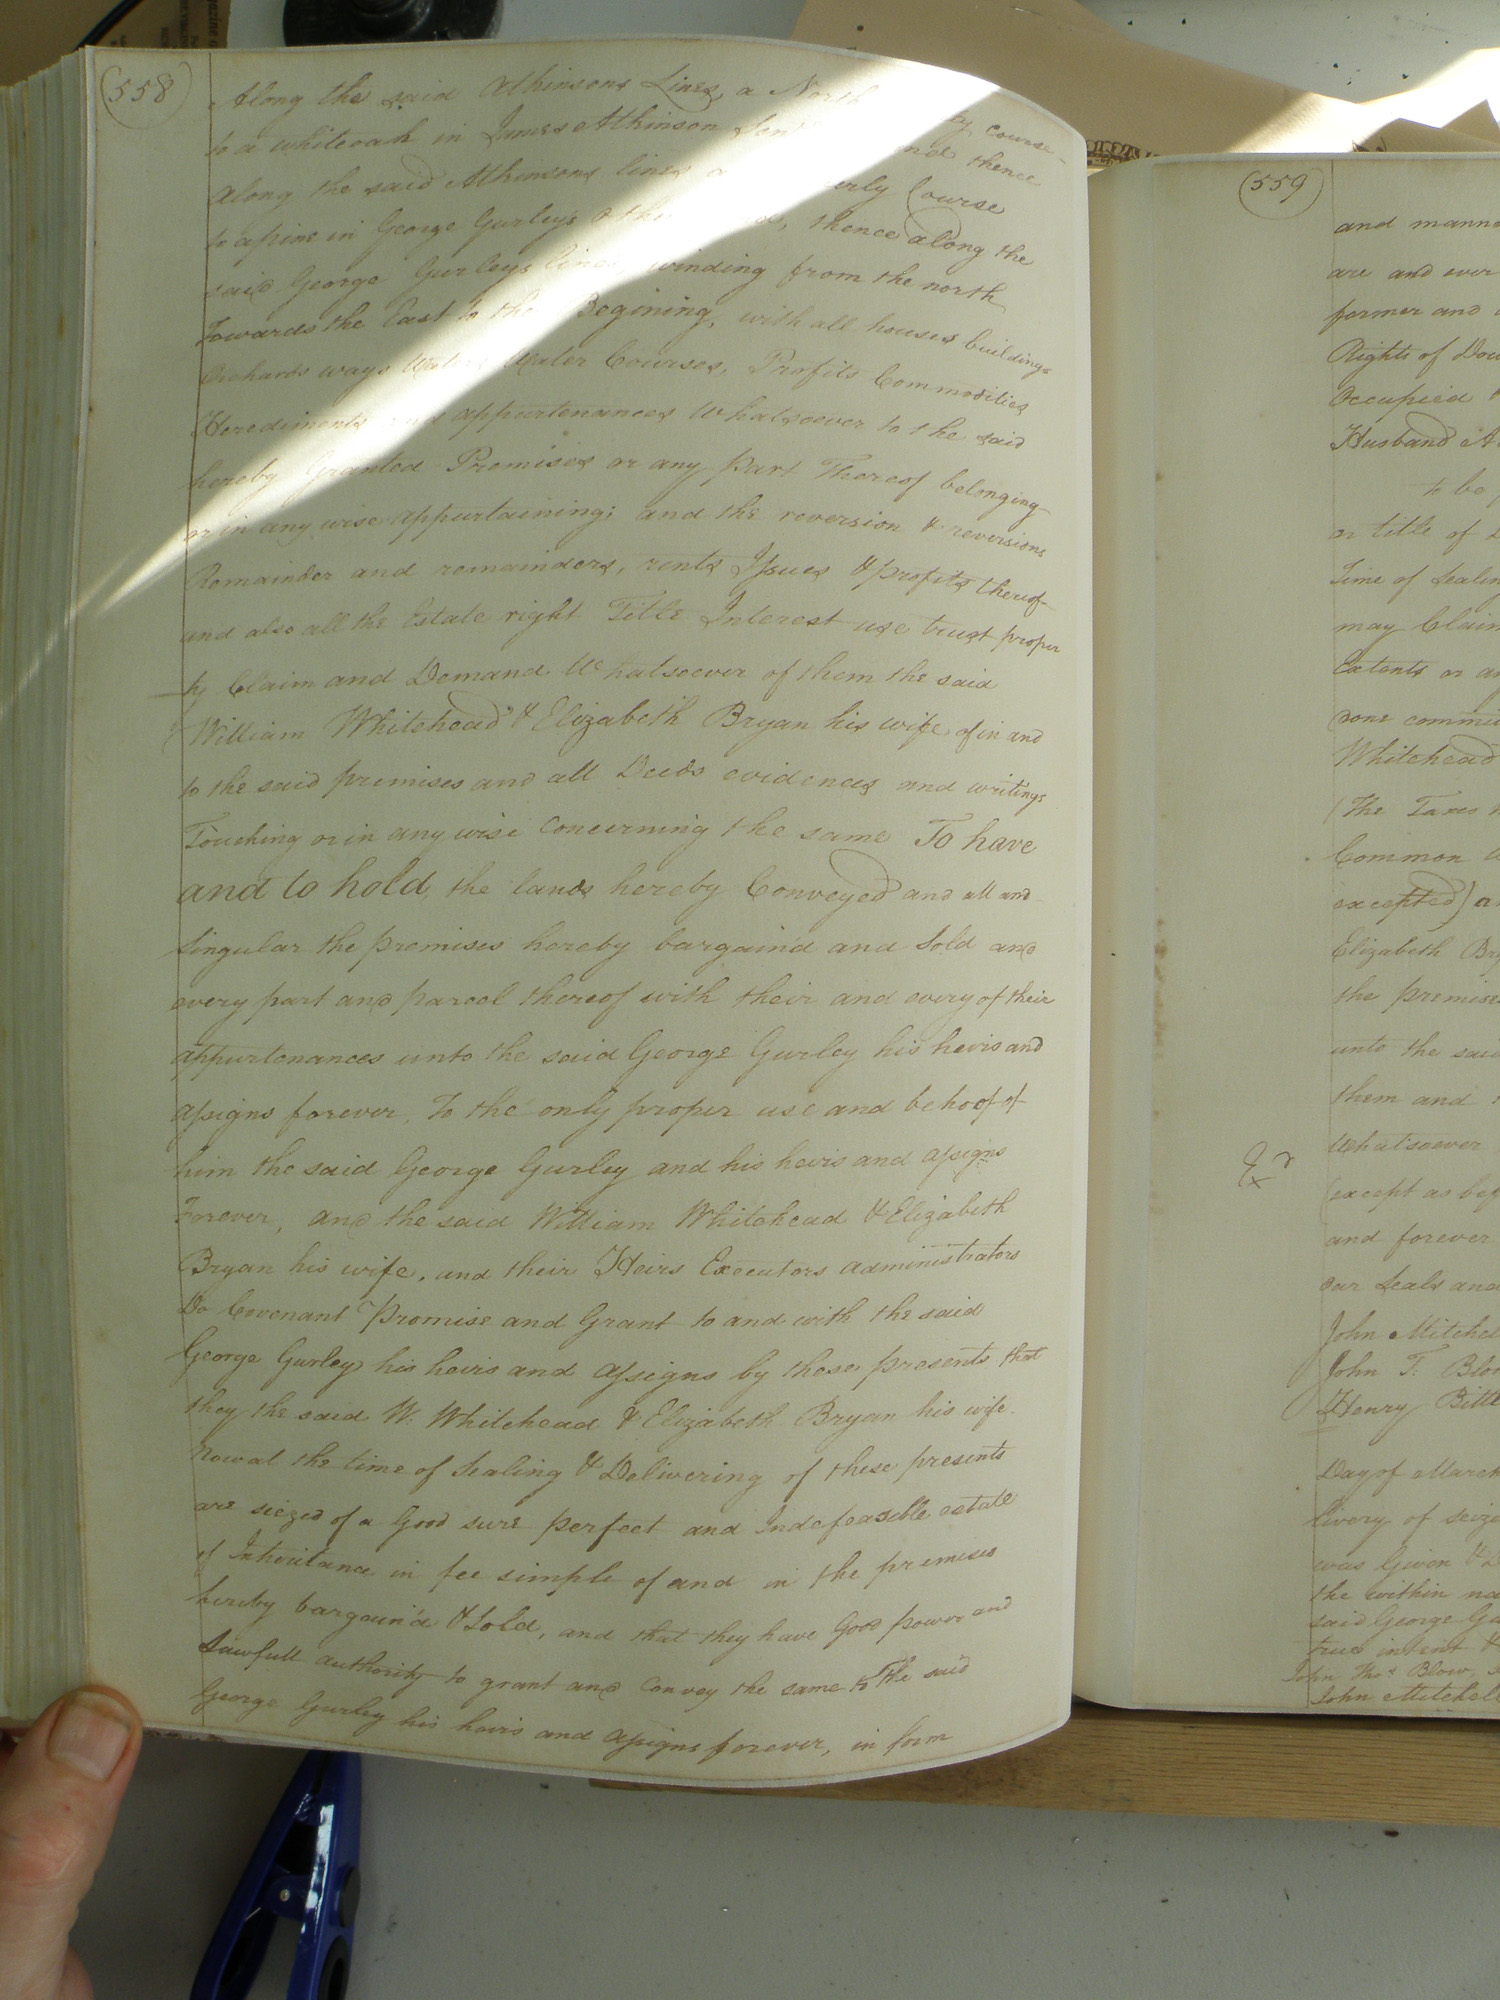 558
Along the said Atkinsons Lines, a North ly course
to a whiteoak in James Atkinson and thence
along the said Atkinsons lines a erly Course
to a pine in George Gurley's thence along the
said George Gurleys lines, winding from the north
Towards the East to the Begining, with all houses buildings
Orchards ways Waters Water Courses, Profits Commodities
Herediments and appurtenances whatsoever to the said
hereby Granted Premises or any part Thereof belonging
or in any wise appurtaining; and the reversion & reversions
Remainder and remainders, rents Issues & profits thereof
and also all the Estate right Title Interest use trust proper
ty Claim and Demand Whatsoever of them the said
William Whitehead & Elizabeth Bryan his wife, of in and
to the said premises and all Deeds evidences and writings
Touching or in any wise Concerning the same To have
and to hold, the lands hereby Conveyed and all and
Singular the premises hereby bargaind and Sold and
every part and parcel thereof with their and every of their
appurtenances unto the said George Gurley his heirs and
assigns forever, To the only proper use and behoof of
him the said George Gurley and his heirs and assigns
Forever, and the said William Whitehead & Elizabeth
Bryan his wife, and their Heirs Executors administrators
Do Covenant Promise and Grant to and with the said
George Gurley his heirs and assigns by these presents that
they the said W. Whitehead & Elizabeth Bryan his wife
Now at the time of Sealing & Delivering of these presents
are siezed of a Good sure perfect and Indefeasible estate
of Inheritance in fee simple of and in the premises
hereby bargain'd & Sold, and that they have Good power and
Lawfull authority to grant and Convey the same to The said
George Gurley his heirs and assigns forever, in form
559
and mann
are and ever
former and
Rights of Dow
Occupied
Husband
to be
or title of
Time of Sealin
may Claim
Extents or a
done commi
Whitehead
(The Taxes
Common
excepted) a
Elizabeth Bry
the premise
unto the said
them and
Whatsoever
(except as bef
and forever
our Seals and
John Mitchel
John T. Blo
Henry Bitt
Day of March
livery of seize
was Given &
the within na
said George Gu
true intent &
John Thos Blow
John Mitchell